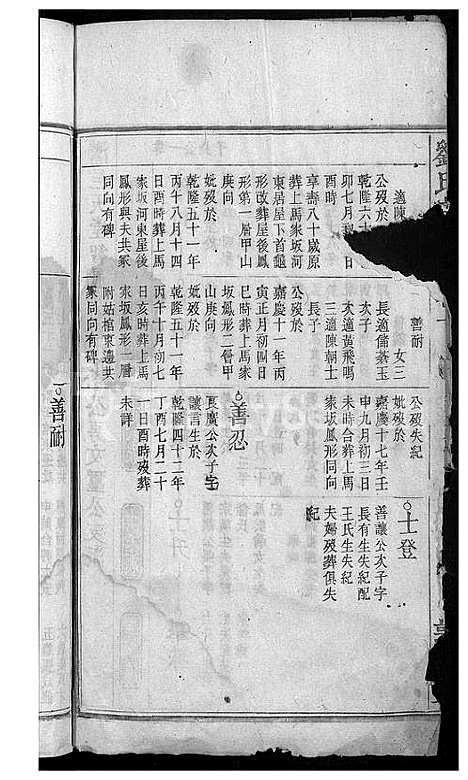 適陳
公歿於
乾隆六十
卯七月
酉時
享壽八十歲原
葬上馬家坂河
東居屋下首龜
形改葬屋後鳳
形第一層甲山
庚向
妣歿於
乾隆五十一年
丙午八月十四
日酉時葬上馬
家坂河東屋後
鳳形與夫共冢
同向有碑
善耐
女三
長適儲綦玉
次子
次適黃飛鳴
三適陳朝士
長子
公歿於
嘉慶十一年丙
寅正月初四日
巳時葬上馬家
坂鳳形二層甲
山庚向
妣歿於
乾隆五十一年
丙午十月初七
日亥時葬上馬
家坂鳳形一層
附姑棺東邊共
冢同向有碑
公歿失紀
妣歿於
嘉慶十七年壬
申九月初三日
未時合葬上馬
家坂鳳形同向
善忍
長廣公次子字
讓言生於
乾隆四十二年
丁酉七月二十
一日酉時歿葬
未詳
士登
善讓公次子字
長有生失紀配
王氏生失紀
夫婦歿葬俱失
紀
善耐
劉氏